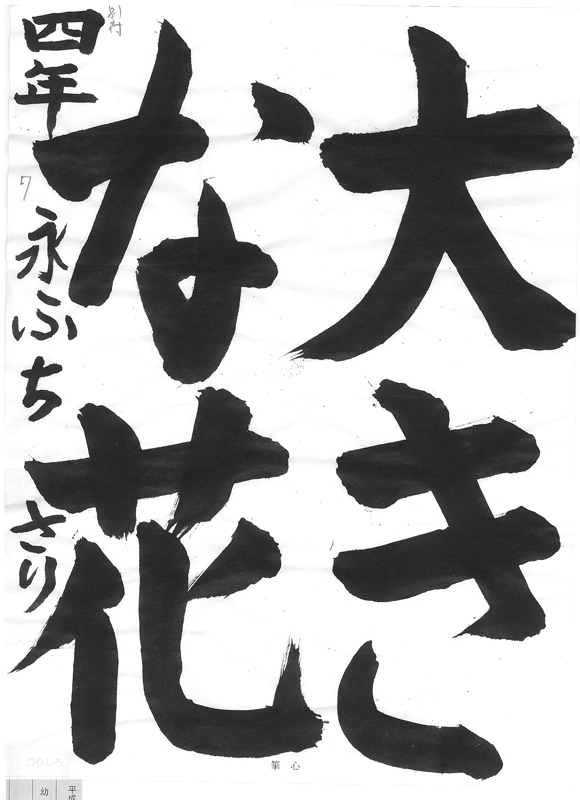 大き
な花
四年 永ふち さり
心筆
のりしろ
平成
幼